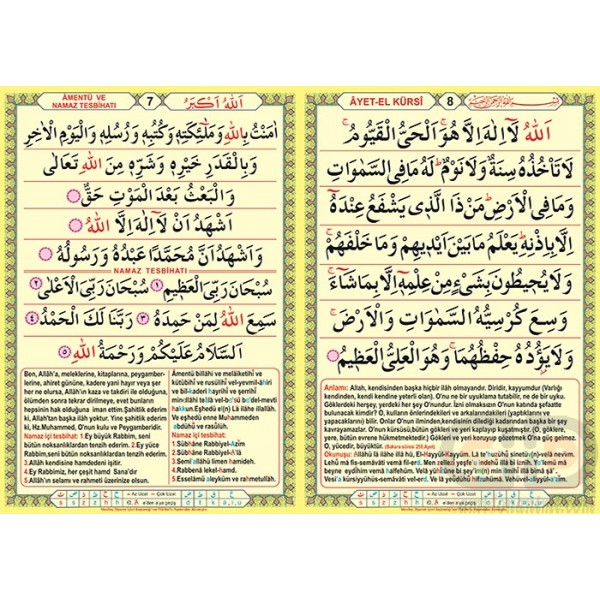 ÂMENTÜ VE
NAMAZ TESBİHATI
7
اَللّٰهُ اَكْبَرُ
اٰمَنْتُ بِاللّٰهِ وَمَلٰٓئِكَتِهٖ وَكُتُبِهٖ وَرُسُلِهٖ وَالْيَوْمِ الْاٰخِرِ
وَبِالْقَدَرِ خَيْرِهٖ وَشَرِّهٖ مِنَ اللّٰهِ تَعَالٰى
وَالْبَعْثُ بَعْدَ الْمَوْتِ حَقٌّ
اَشْهَدُ اَنْ لَٓا اِلٰهَ اِلَّا اللّٰهُ
وَاَشْهَدُ اَنَّ مُحَمَّدًا عَبْدُهُ وَرَسُولُهُ
NAMAZ TESBİHATI
سُبْحَانَ رَبِّيَ الْعَظٖيمِ ١ سُبْحَانَ رَبِّيَ الْاَعْلٰى ٢
سَمِعَ اللّٰهُ لِمَنْ حَمِدَهُ ٣ رَبَّنَا لَكَ الْحَمْدُ ٤
اَلسَّلَامُ عَلَيْكُمْ وَرَحْمَةُ اللّٰهِ ٥
Ben, Allâh'a, meleklerine, kitaplarına, peygamber-
lerine, ahiret gününe, kadere yani hayır veya şer
her ne olursa, Allâh'ın kaza ve takdiri ile olduğuna,
öldükten sonra tekrar dirilmeye, evet bunların
hepsinin hak olduğuna iman ettim.Şahitlik ederim
ki, Allah'tan başka ilâh yoktur. Yine şahitlik ederim
ki, Hz.Muhammed, O'nun kulu ve Peygamberidir.
Namaz içi tesbihat: 1.Ey büyük Rabbim, seni
bütün noksanlıklardan tenzih ederim. 2.Ey yüce
Rabbim,seni bütün noksanlıklardan tenzih ederim.
3.Allâh kendisine hamdedeni işitir.
4.Ey Rabbimiz, her çeşit hamd Sana'dır
5.Allâh'ın selamı ve rahmeti üzerinize olsun.
Âmentü billâhi ve melâiketihî ve
kütübihî ve rusülihî vel-yevmil-âhiri
ve bil-kaderi hayrihî ve şerrihî
minallâhi teâlâ vel-ba'sü ba'del-mevti
hakkun.Eşhedü el(n) Lâ ilâhe illallâh.
Ve eşhedü enne Muhammeden
abdühû ve rasûlüh.
Namaz içi tesbihat:
1.Sübhâne Rabbiyel-Azîm
2.Sübhâne Rabbiyel-A'lâ
3.Semi Allâhu limen hamideh.
4.Rabbenâ lekel-hamd.
5.Esselâmü aleyküm ve rahmetullâh.
AYET-EL KÜRSÎ
8
اَللّٰهُ لَٓا اِلٰهَ اِلَّا هُوَ اَلْحَيُّ الْقَيُّومُ
لَا تَأْخُذُهُ سِنَةٌ وَلَا نَوْمٌ لَهُ مَا فِي السَّمٰوَاتِ
وَمَا فِي الْاَرْضِ مَنْ ذَا الَّذٖي يَشْفَعُ عِنْدَهُٓ
اِلَّا بِاِذْنِهٖ يَعْلَمُ مَا بَيْنَ اَيْدٖيهِمْ وَمَا خَلْفَهُمْ
وَلَا يُحٖيطُونَ بِشَيْءٍ مِنْ عِلْمِهٖٓ اِلَّا بِمَا شَٓاءَ
وَسِعَ كُرْسِيُّهُ السَّمٰوَاتِ وَالْاَرْضَ
وَلَا يَؤُدُهُ حِفْظُهُمَا وَهُوَ الْعَلِيُّ الْعَظٖيمُ
Anlamı: Allah, kendisinden başka hiçbir ilâh olmayandır. Diridir, kayyumdur (Varlığı
kendinden, kendi kendine yeterli olan). O'nu ne bir uyuklama tutabilir, ne de bir uyku.
Göklerdeki her şey, yerdeki her şey O'nundur. İzni olmaksızın O'nun katında şefaatte
bulunacak kimdir? O, kulların önlerindekileri ve arkalarındakileri (yaptıklarını ve
yapacaklarını) bilir. Onlar O'nun ilminden,kendisinin dilediği kadarından başka bir şey
kavrayamazlar. O'nun kürsüsü,bütün gökleri ve yeri kaplayıp kuşatmıştır. (O, göklere,
yere, bütün evrene hükmetmektedir.) Gökleri ve yeri koruyup gözetmek O'na güç gelmez.
O, yücedir, büyüktür. (Bakara sûresi 255.Ayet)
Okunuşu: Allâhu lâ ilâhe illâ hû, El-Hayyül-Kayyûm. Lâ te'huzühû sinetü(v)-velâ nevîm.
Lehû mâ fis-semâvâti vemâ fil-ard. Men zellezî yeşfe'u indehû illâ bi iznih. Ya'lemü mâ
beyne eydîhim vemâ halfehüm. Velâ yühîtûne bi şey'in(m) min ilmihî illâ bimâ şâ'.
Vesi'a kürsiyyühüs-semâvâti vel-ard. Ve lâ yeûdühû hıfzuhümâ. Vehüvel-aliyyül-azîm.